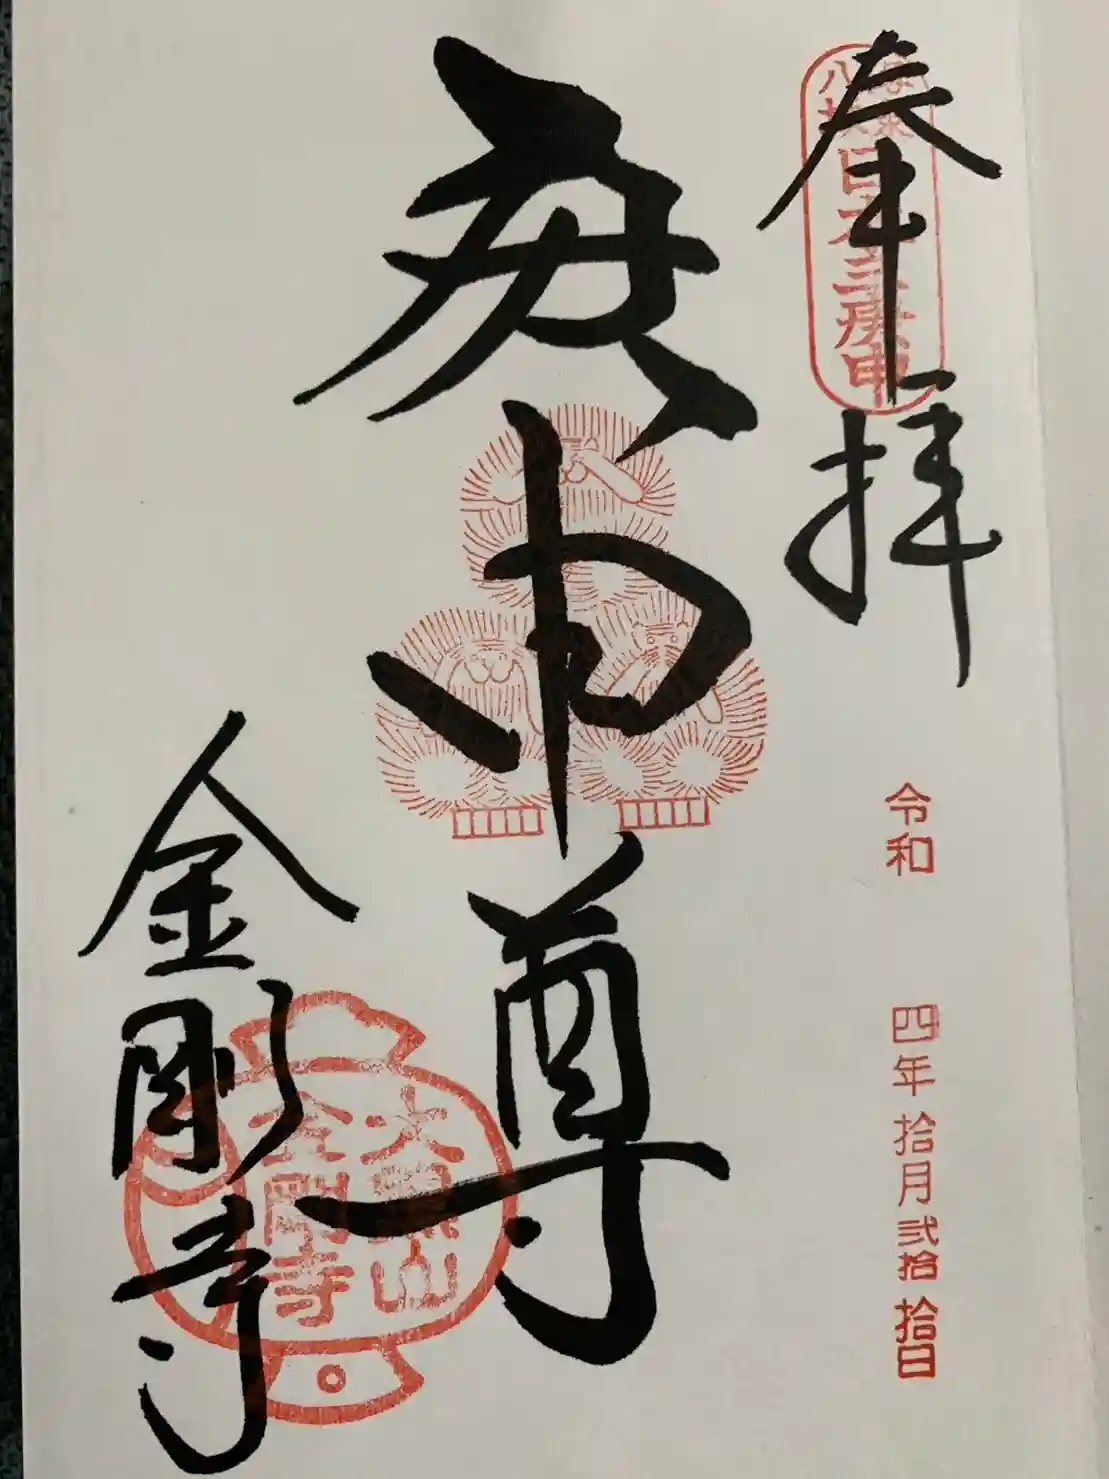 奉拝
日本三庚申
令和 四年拾月弐拾拾日
庚申尊
金剛寺
大黒山
金剛寺